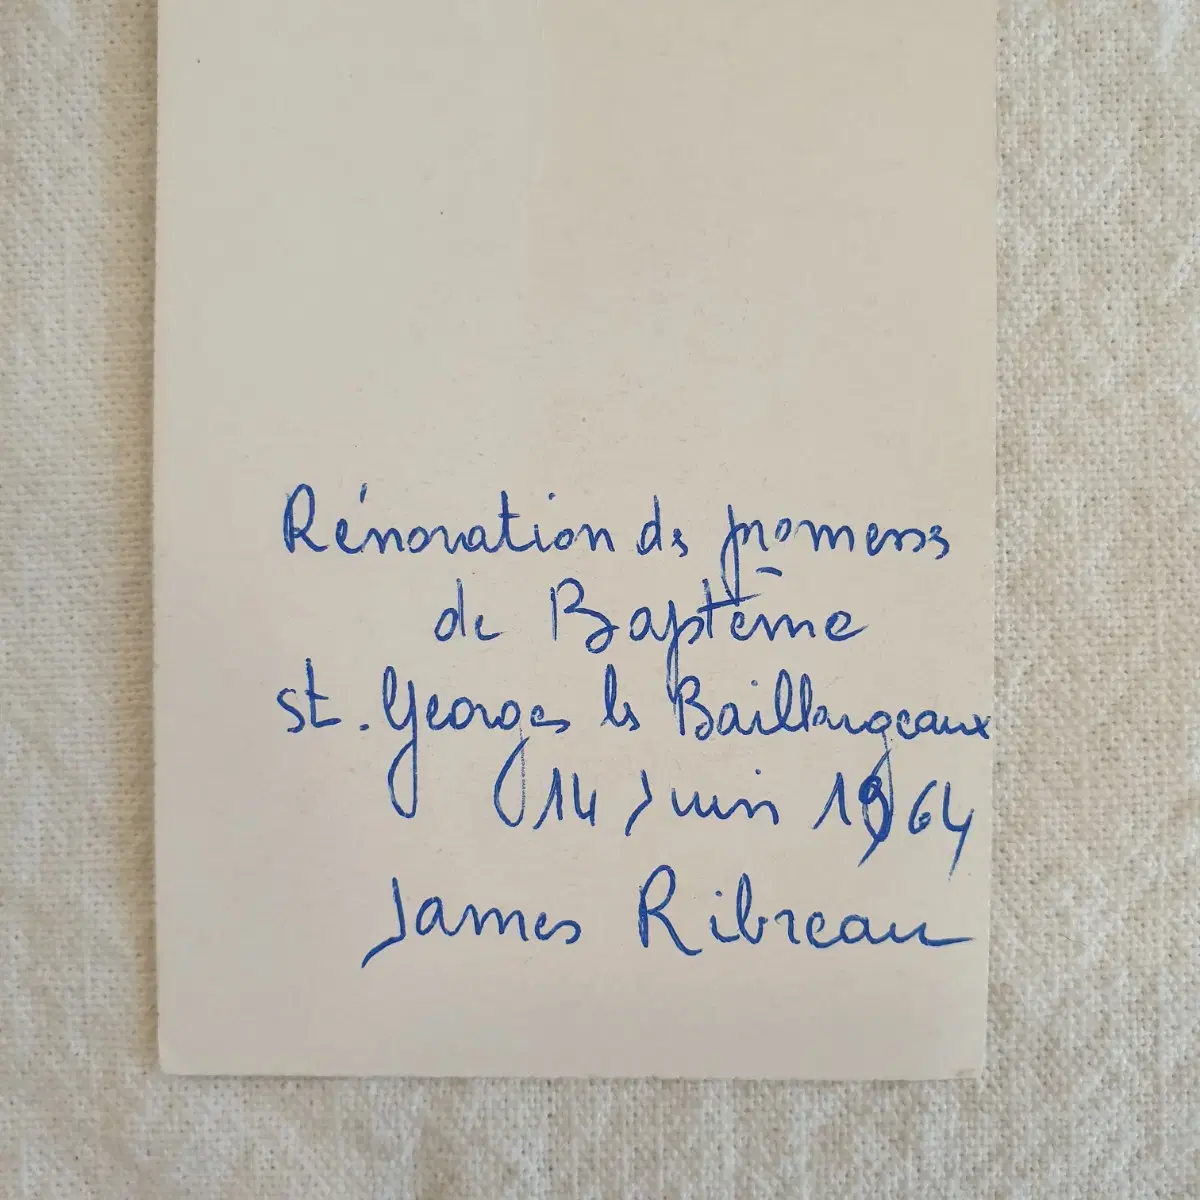 Rénovation des promesses
de Baptême
st. Georges les Baillargeaux
14 Juin 1964
James Ribreau